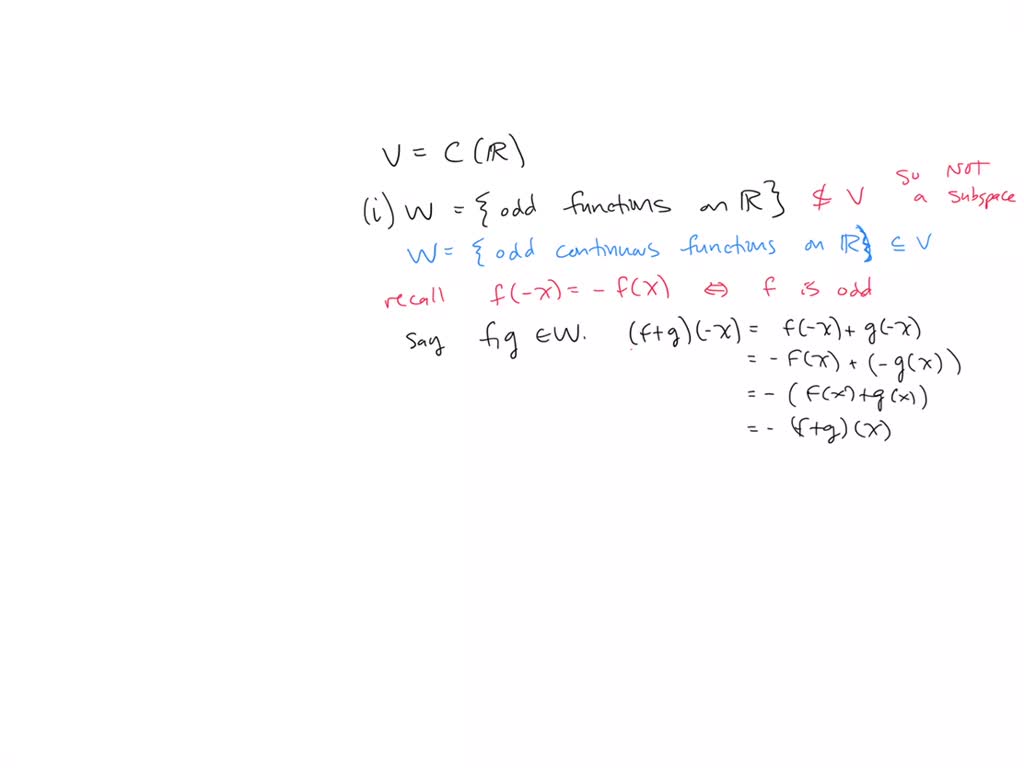 V = C(ℝ)
(i) W = { odd functions on ℝ } ⊈ V so NOT a subspace
W = { odd continuous functions on ℝ } ⊆ V
recall f(-x) = - f(x) ⇔ f is odd
say f,g ∈ W. (f+g)(-x) = f(-x) + g(-x)
= - f(x) + (-g(x))
= - (f(x)+g(x))
= - (f+g)(x)